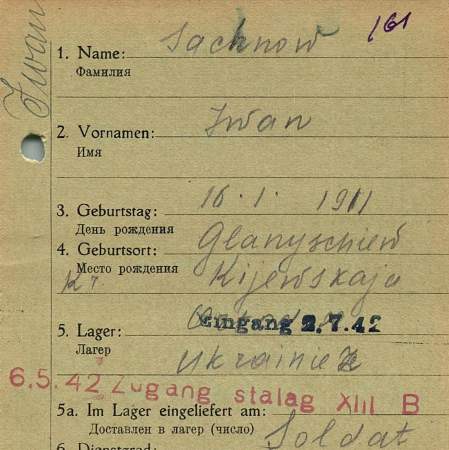 Iwan
161
1. Name: Sachnow
Фамилия
2. Vornamen: Iwan
Имя
3. Geburtstag: 16.1.1911
День рождения
Glanyschiew
4. Geburtsort:
Место рождения
Kr. Kijewskaja
Eingang 2.7.42
5. Lager:
Лагерь
Ukrainie
6.5.42 Zugang stalag XIII B
5a. Im Lager eingeliefert am:
Доставлен в лагерь (число)
Soldat
6. Dienstgrad: